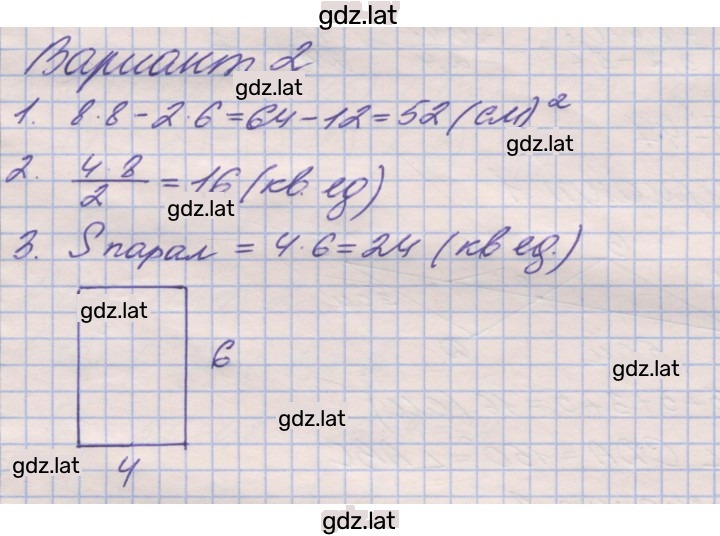 gdz.lat
Вариант 2
gdz.lat
1. 8·8-2·6=64-12=52 (см)²
gdz.lat
2. 4·8/2 = 16 (кв. ед)
gdz.lat
3. Sпарал = 4·6=24 (кв ед.)
gdz.lat
6
gdz.lat
gdz.lat
gdz.lat
4
gdz.lat